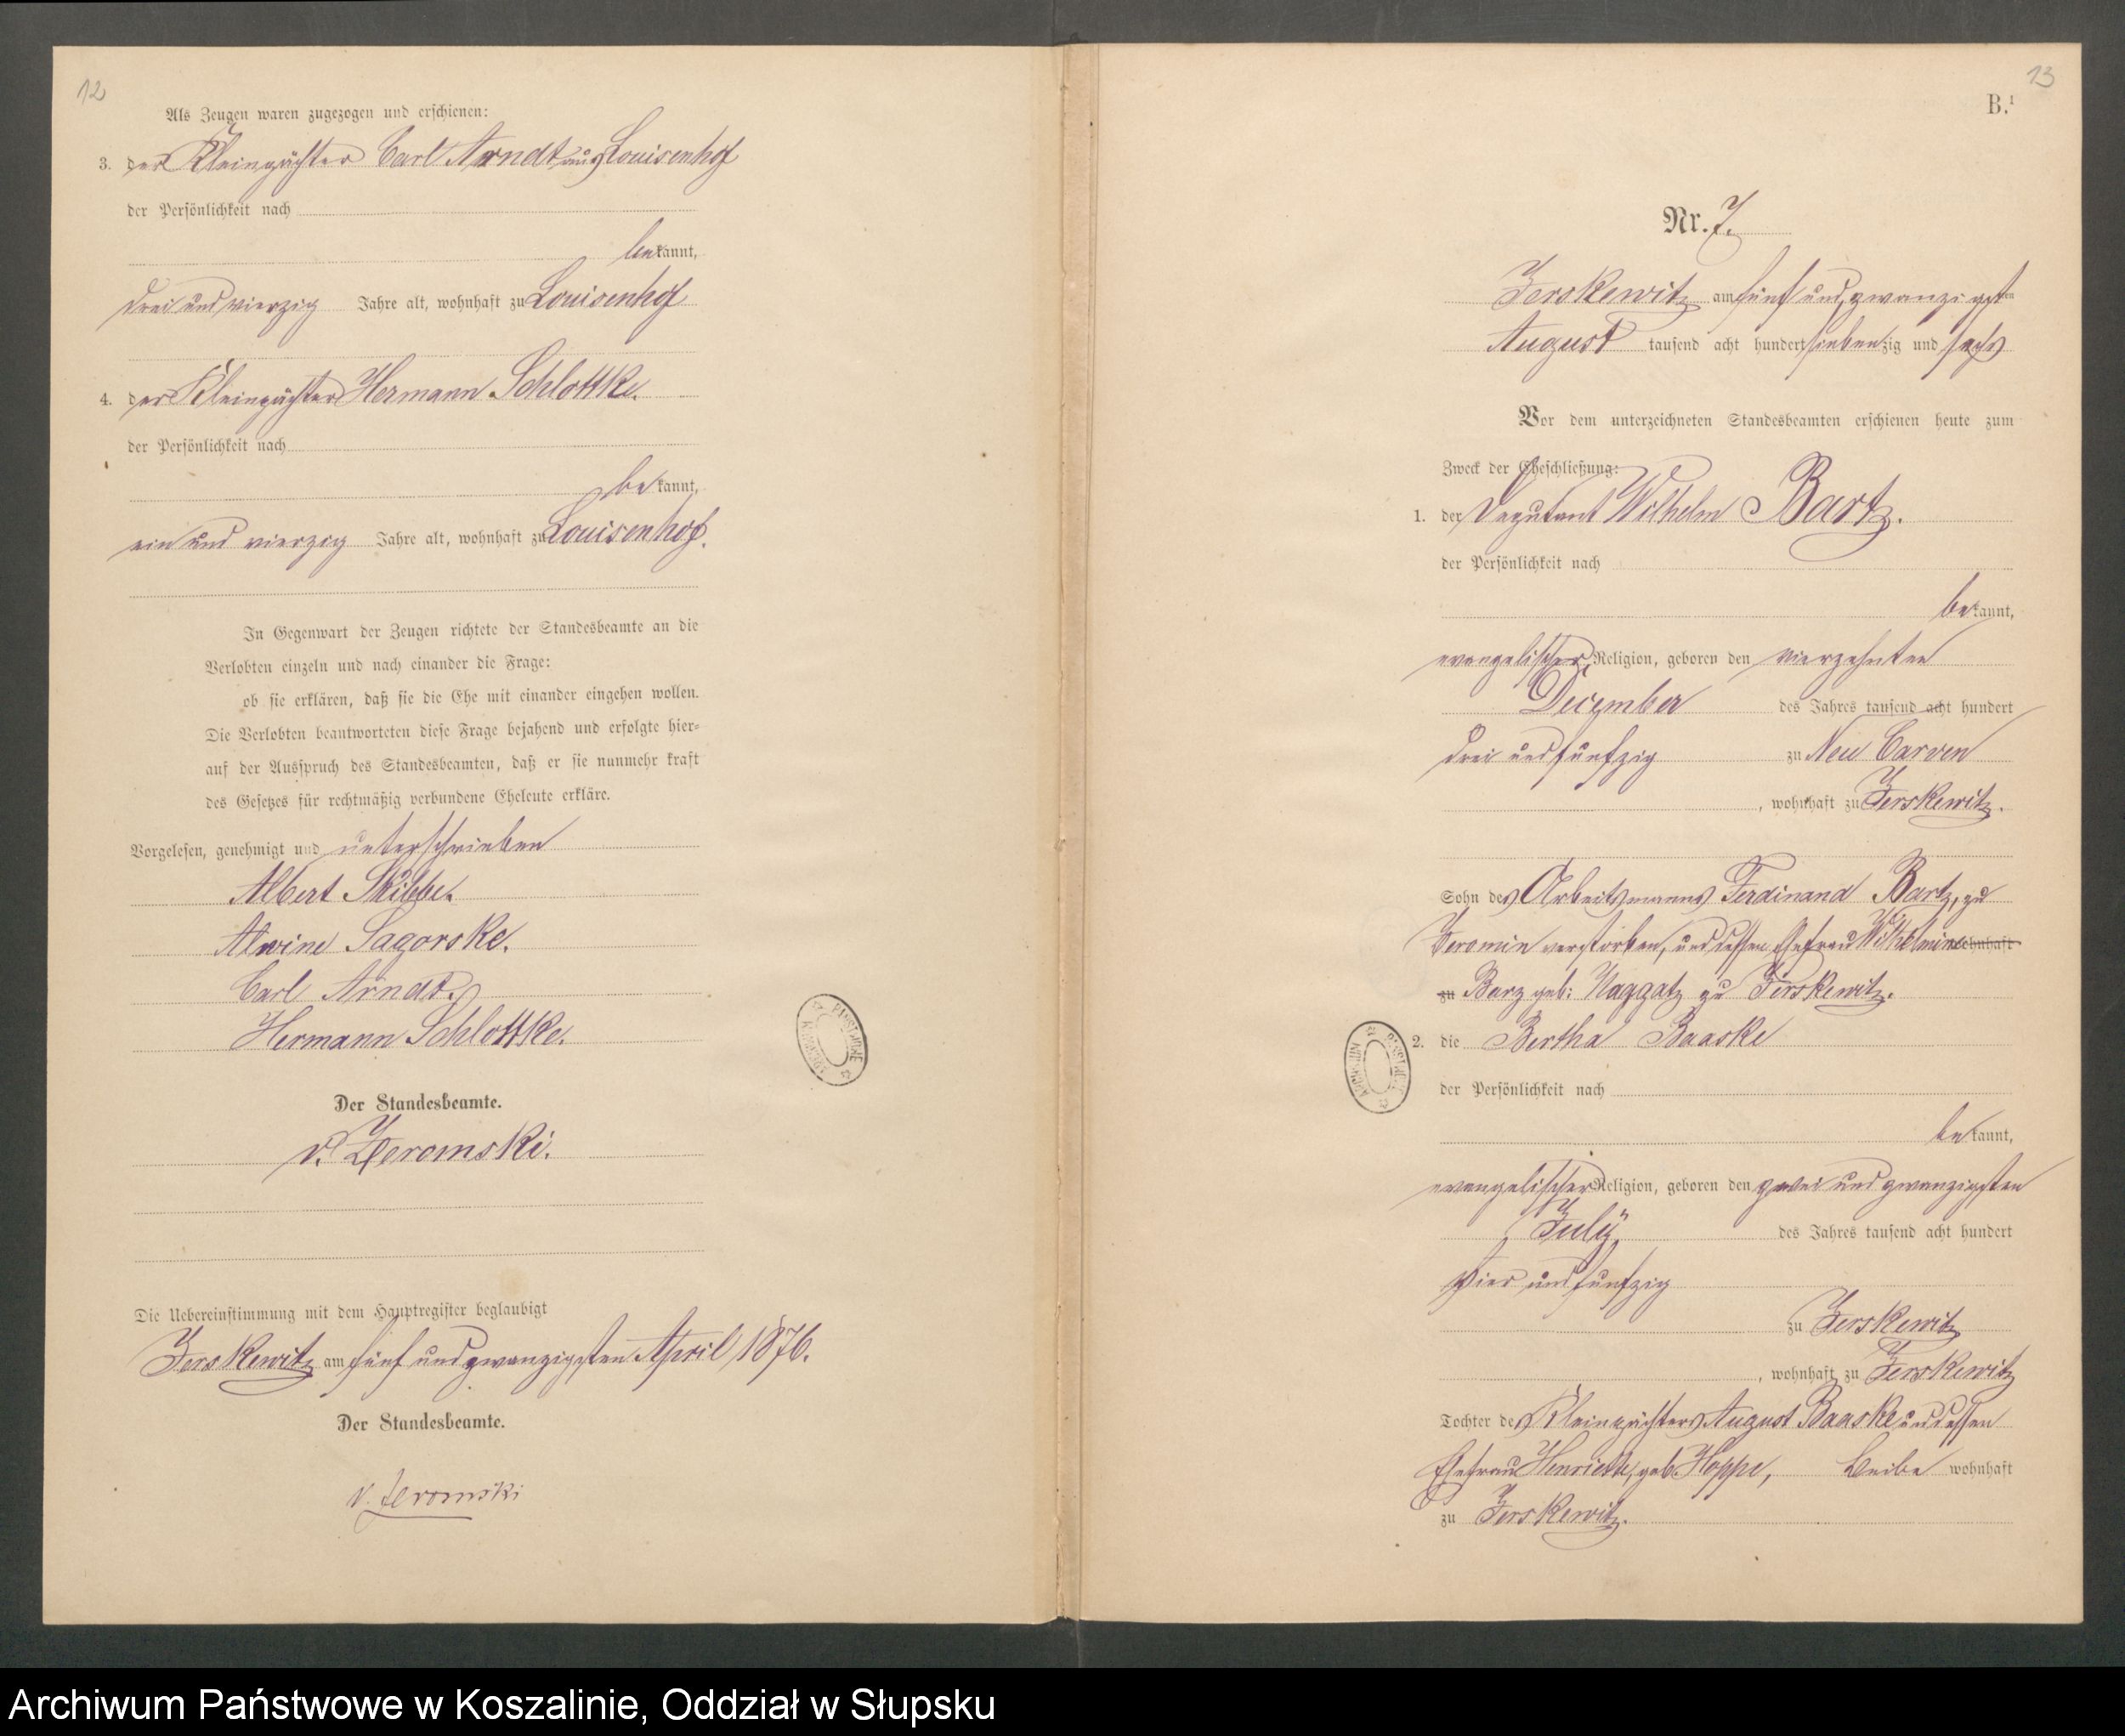 12
Als Zeugen waren zugezogen und erschienen:
3. der Kleinpächter Carl Arndt aus Louisenhof
der Persönlichkeit nach
bekannt,
drei und vierzig Jahre alt, wohnhaft zu Louisenhof
4. der Kleinpächter Hermann Schlottke.
der Persönlichkeit nach
bekannt,
ein und vierzig Jahre alt, wohnhaft zu Louisenhof.
In Gegenwart der Zeugen richtete der Standesbeamte an die
Verlobten einzeln und nach einander die Frage:
ob sie erklären, daß sie die Ehe mit einander eingehen wollen.
Die Verlobten beantworteten diese Frage bejahend und erfolgte hier-
auf der Ausspruch des Standesbeamten, daß er sie nunmehr kraft
des Gesetzes für rechtmäßig verbundene Eheleute erkläre.
Vorgelesen, genehmigt und unterschrieben
Albert Skibbe.
Alwine Sagorske.
Carl Arndt.
Hermann Schlottke.
Der Standesbeamte.
v. Zeromski.
Die Uebereinstimmung mit dem Hauptregister beglaubigt
Jerskewitz am fünf und zwanzigsten April 1876.
Der Standesbeamte.
v. Zeromski
13
B.¹
Nr. 7.
Jerskewitz am fünf und zwanzigsten
August tausend acht hundert siebenzig und sechs
Vor dem unterzeichneten Standesbeamten erschienen heute zum
Zweck der Eheschließung:
1. der Deputant Wilhelm Bartz.
der Persönlichkeit nach
bekannt,
evangelischer Religion, geboren den vierzehnten
December des Jahres tausend acht hundert
drei und fünfzig zu Neu Carven
, wohnhaft zu Jerskewitz.
Sohn des Arbeitsmanns Ferdinand Bartz, zu
verstorben, und dessen Ehefrau Wilhelmine wohnhaft
zu Barz geb: Naggatz zu Jerskewitz.
2. die Bertha Baaske
der Persönlichkeit nach
bekannt,
evangelischer Religion, geboren den zwei und zwanzigsten
July des Jahres tausend acht hundert
vier und fünfzig
zu Jerskewitz
, wohnhaft zu Jerskewitz
Tochter des Kleinpächters August Baaske und dessen
Ehefrau Henriette, geb. Hoppe, beide wohnhaft
zu Jerskewitz.
Archiwum Państwowe w Koszalinie, Oddział w Słupsku